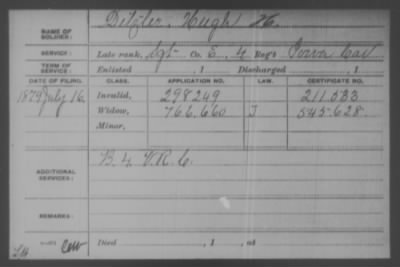 NAME OF SOLDIER: Ditzler, Hugh H.
SERVICE: Late rank, Sgt Co. E, 4 Reg't Iowa Cav
TERM OF SERVICE: Enlisted , 1 Discharged , 1
DATE OF FILING. CLASS. APPLICATION NO. LAW. CERTIFICATE NO.
1879 July 16. Invalid, 298249 211.533
Widow, 766.660 J 545.628.
Minor,
ADDITIONAL SERVICES: B. 4 V.R.C.
REMARKS:
Died , 1 , at